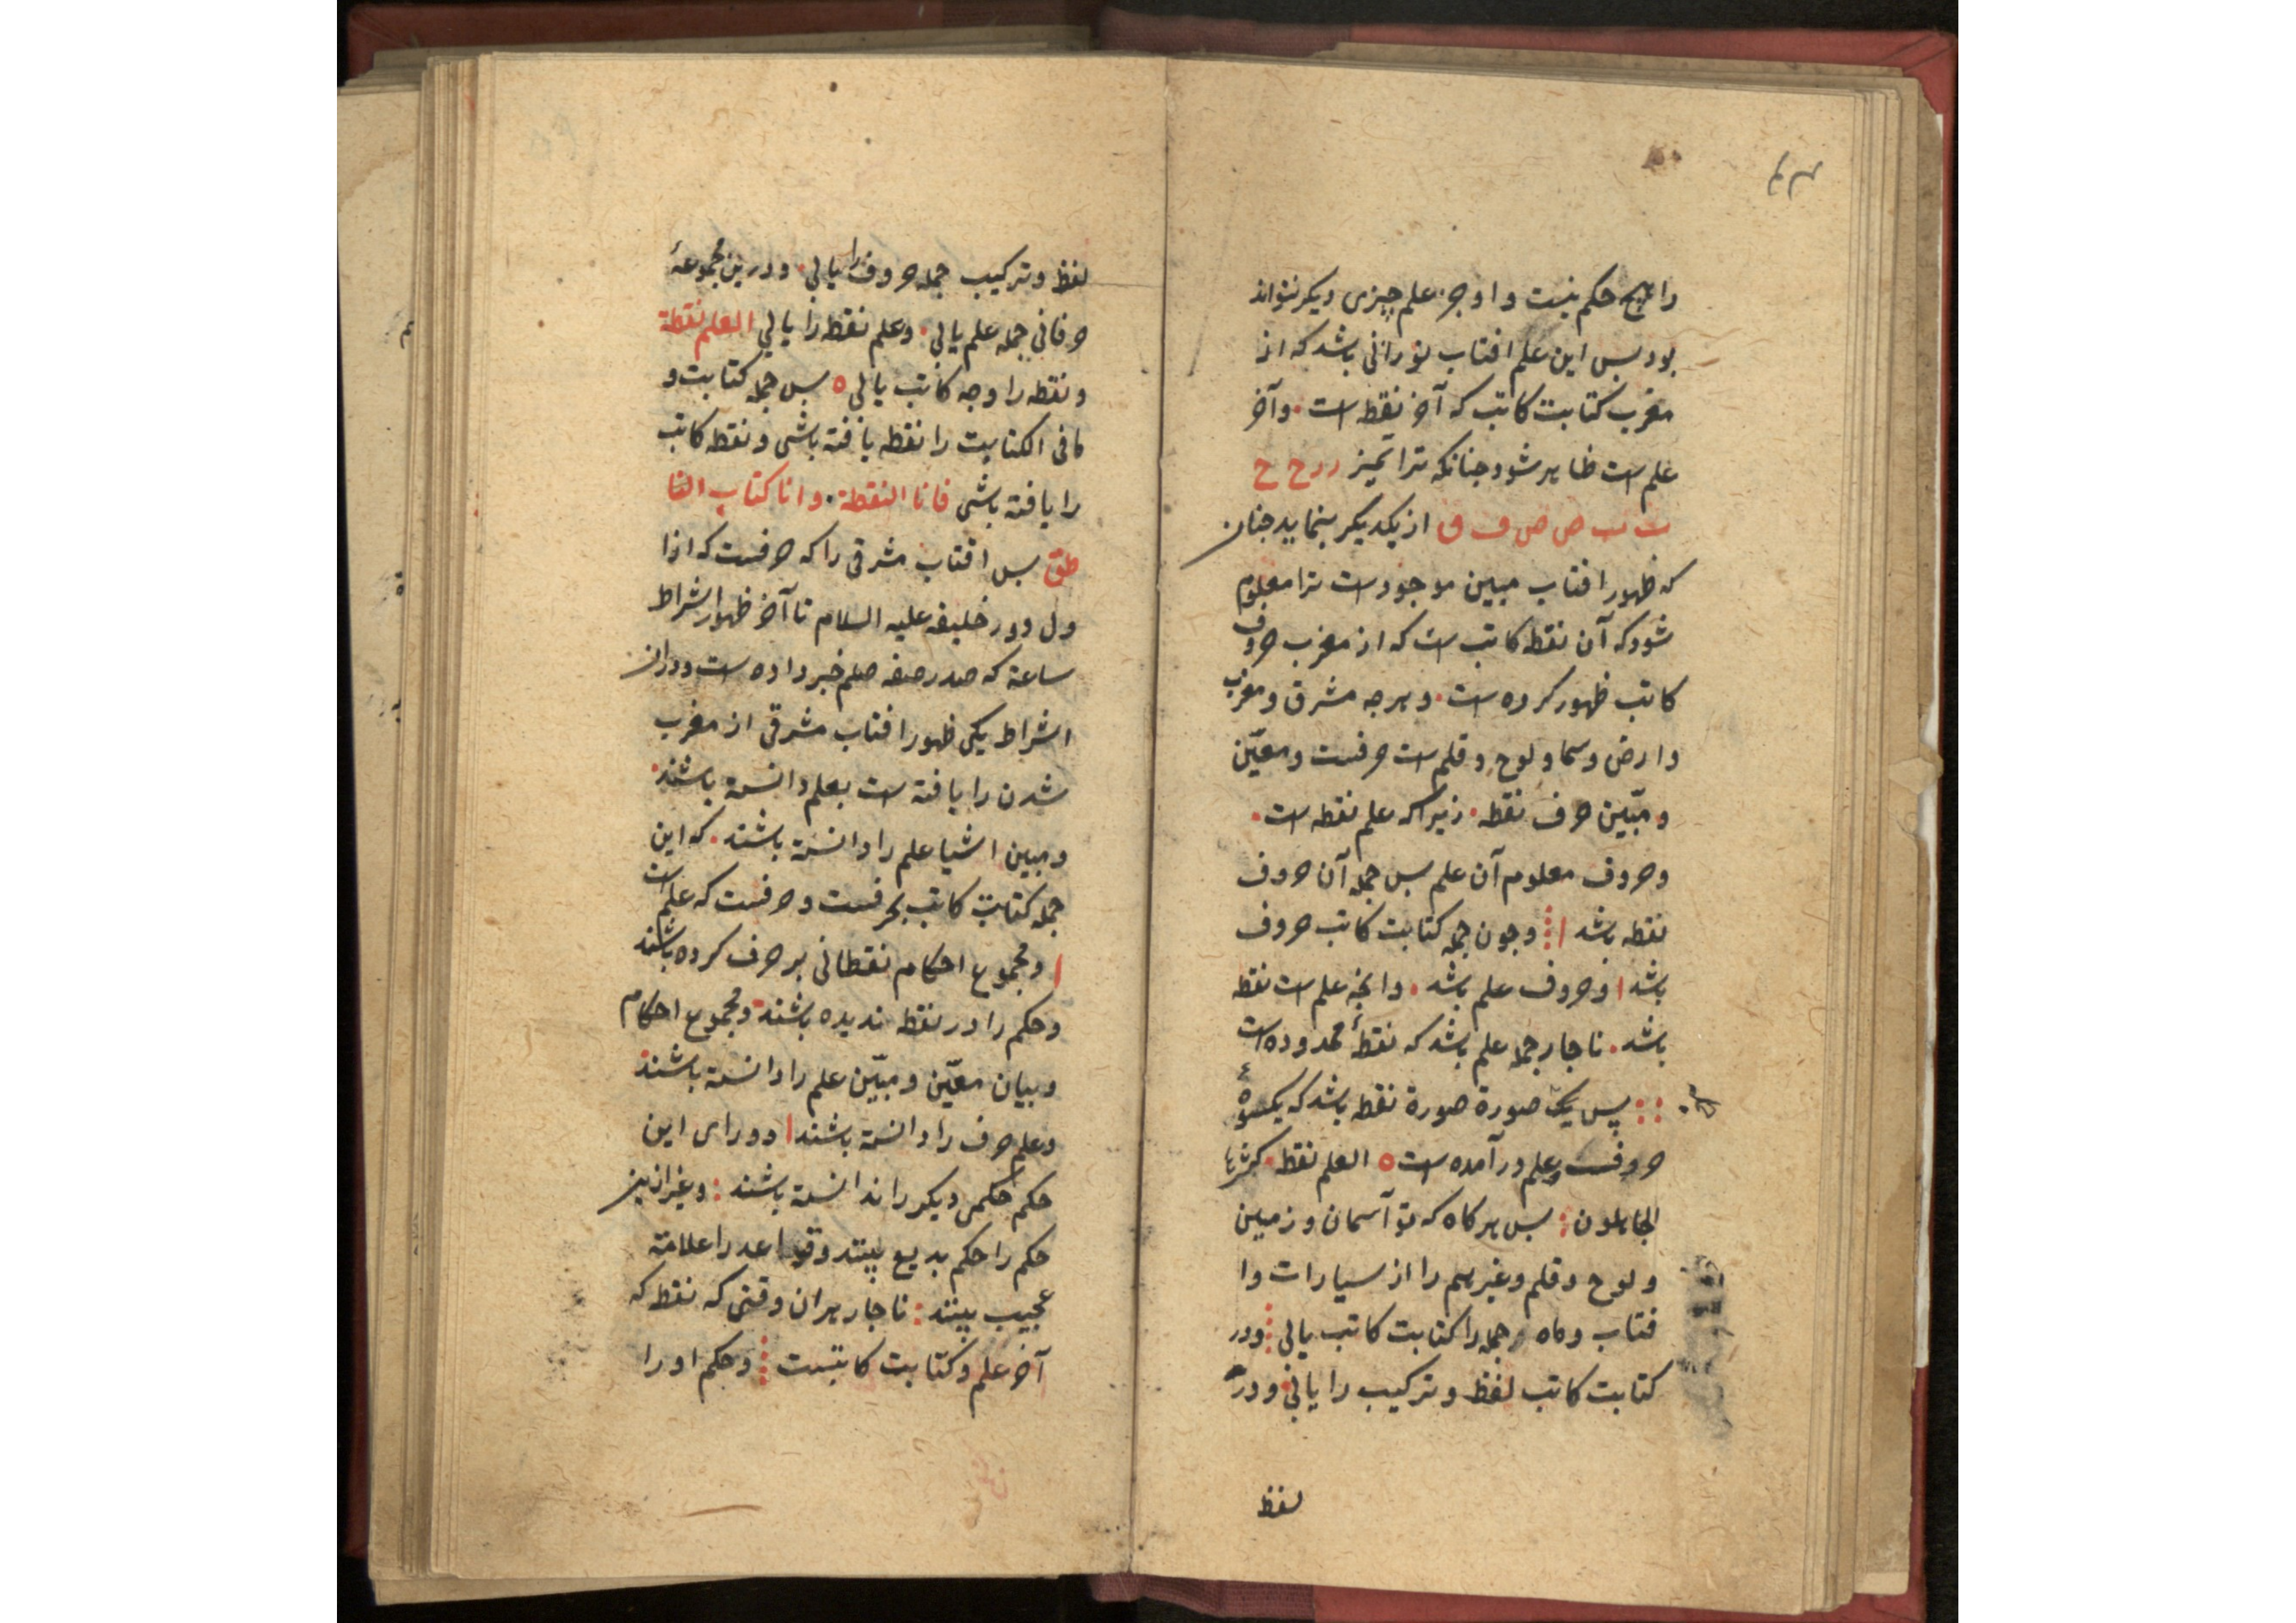 را هیچ حکم نیست و او جز علم چیزی دیکر نتواند
بود بس این علم افتاب نورانی باشد که از
مغرب کتابت کاتب که آخر نقطه است . و آخر
علم است ظاهر شود جنانکه ترا تمیز ر ر ح ح
ٮ ٮ ص ص ف ق از یکدیکر بنماید جنان
که ظهور افتاب مبین موجود است ترا معلوم
شود که آن نقطه کاتب است که از مغرب حروف
کاتب ظهور کرده است . و هرجه مشرق و مغرب
و ارض و سما و لوح و قلم است حرفست و معیّن
و مبّین حرف نقطه . زیراکه علم نقطه است .
و حروف معلوم آن علم بس جمله آن حروف
نقطه باشد و جون جمله کتابت کاتب حروف
باشد و حروف علم باشد . و انجه علم است نقطه
باشد . ناجار جمله علم باشد که نقطهٔ محدوده است
پس یک صورة صورة نقطه باشد که بکسوة
حروفست و علم در آمده است ه العلم نقطة . کثرها
الجاهلون : بس هرکاه که تو آسمان و زمین
و لوح و قلم و غیرهم را از سیارات و ا
فتاب و ماه و جمله را کتابت کاتب یابی و در
کتابت کاتب لفظ و ترکیب را یابی و در
لفظ
لفظ و ترکیب جمله حروف را یابی . و درین مجموعهٔ
حرفانی جمله علم یابی . و علم نقطه را یابی العلم نقطة
و نقطه را وجه کاتب یابی ه بس جمله کتابت و
ما فی الکتابت را نقطه یافته باشی و نقطه کاتب
را یافته باشی فانا النقطة . و انا کتاب النا
طق بس افتاب مشرقی را که حرفست که از ا
ول دور خلیفه علیه السلام تا آخر ظهور اشراط
ساعة که صدر صفه صلعم خبر داده است و در ان
اشراط یکی ظهور افتاب مشرقی از مغرب
شدن را یافته است بعلم دانسته باشند .
و مبین اشیا علم را دانسته باشند . که این
جمله کتابت کاتب بحرفست و حرفست که علم است
و مجموع احکام نقطانی بر حرف کرده باشند
و حکم را در نقطه ندیده باشند و مجموع احکام
و بیان معیّن و مبیّن علم را دانسته باشند
و علم حرف را دانسته باشند و ورای این
حکم حکمی دیکر را ندانسته باشند : و غیر ازین
حکم را حکم بدیع بینند و قواعد را علامة
عجیب بینند : ناجار هر ان وقتی که نقطه که
آخر علم و کتابت کاتبست و حکم او را